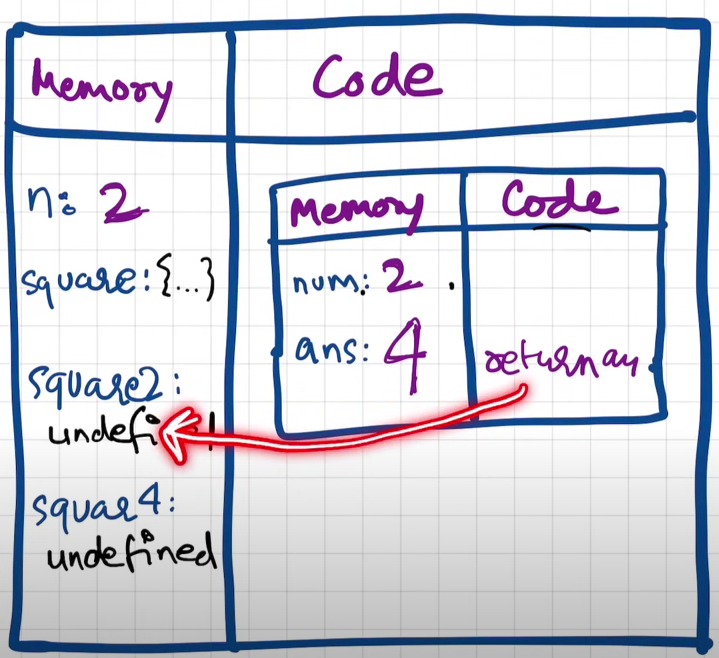 Memory
Code
n: 2
square: {...}
square2:
undefi
squar4:
undefined
Memory
Code
num: 2
ans: 4
return an